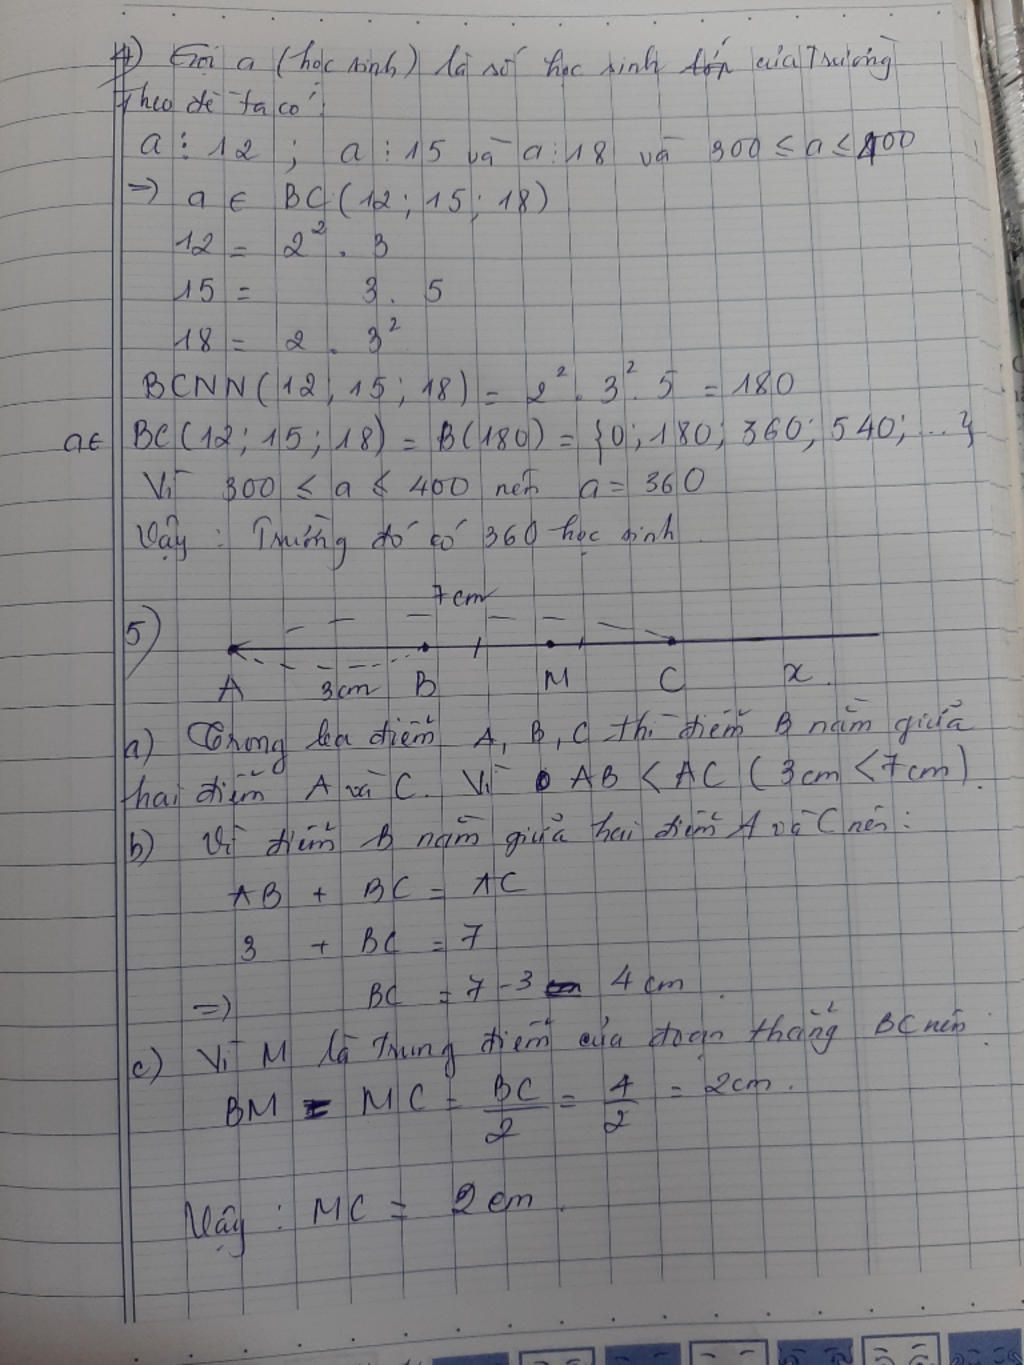 4) Gọi a (học sinh) là số học sinh của Trường
Theo đề ta có:
a ⋮ 12 ; a ⋮ 15 và a ⋮ 18 và 300 ≤ a ≤ 400
=> a ∈ BC (12 ; 15 ; 18)
12 = 2² . 3
15 = 3 . 5
18 = 2 . 3²
BCNN (12 ; 15 ; 18) = 2² . 3² . 5 = 180
a∈ BC (12 ; 15 ; 18) = B(180) = {0 ; 180 ; 360 ; 540 ; ...}
Vì 300 ≤ a ≤ 400 nên a = 360
Vậy : Trường đó có 360 học sinh.
7cm
5)
A 3cm B M C x
a) Trong ba điểm A, B, C thì điểm B nằm giữa
hai điểm A và C. Vì AB < AC (3cm < 7cm).
b) Vì điểm B nằm giữa hai điểm A và C nên :
AB + BC = AC
3 + BC = 7
=> BC = 7 - 3 = 4 cm.
c) Vì M là Trung điểm của đoạn thẳng BC nên :
BM = MC = BC/2 = 4/2 = 2cm.
Vậy : MC = 2 cm.